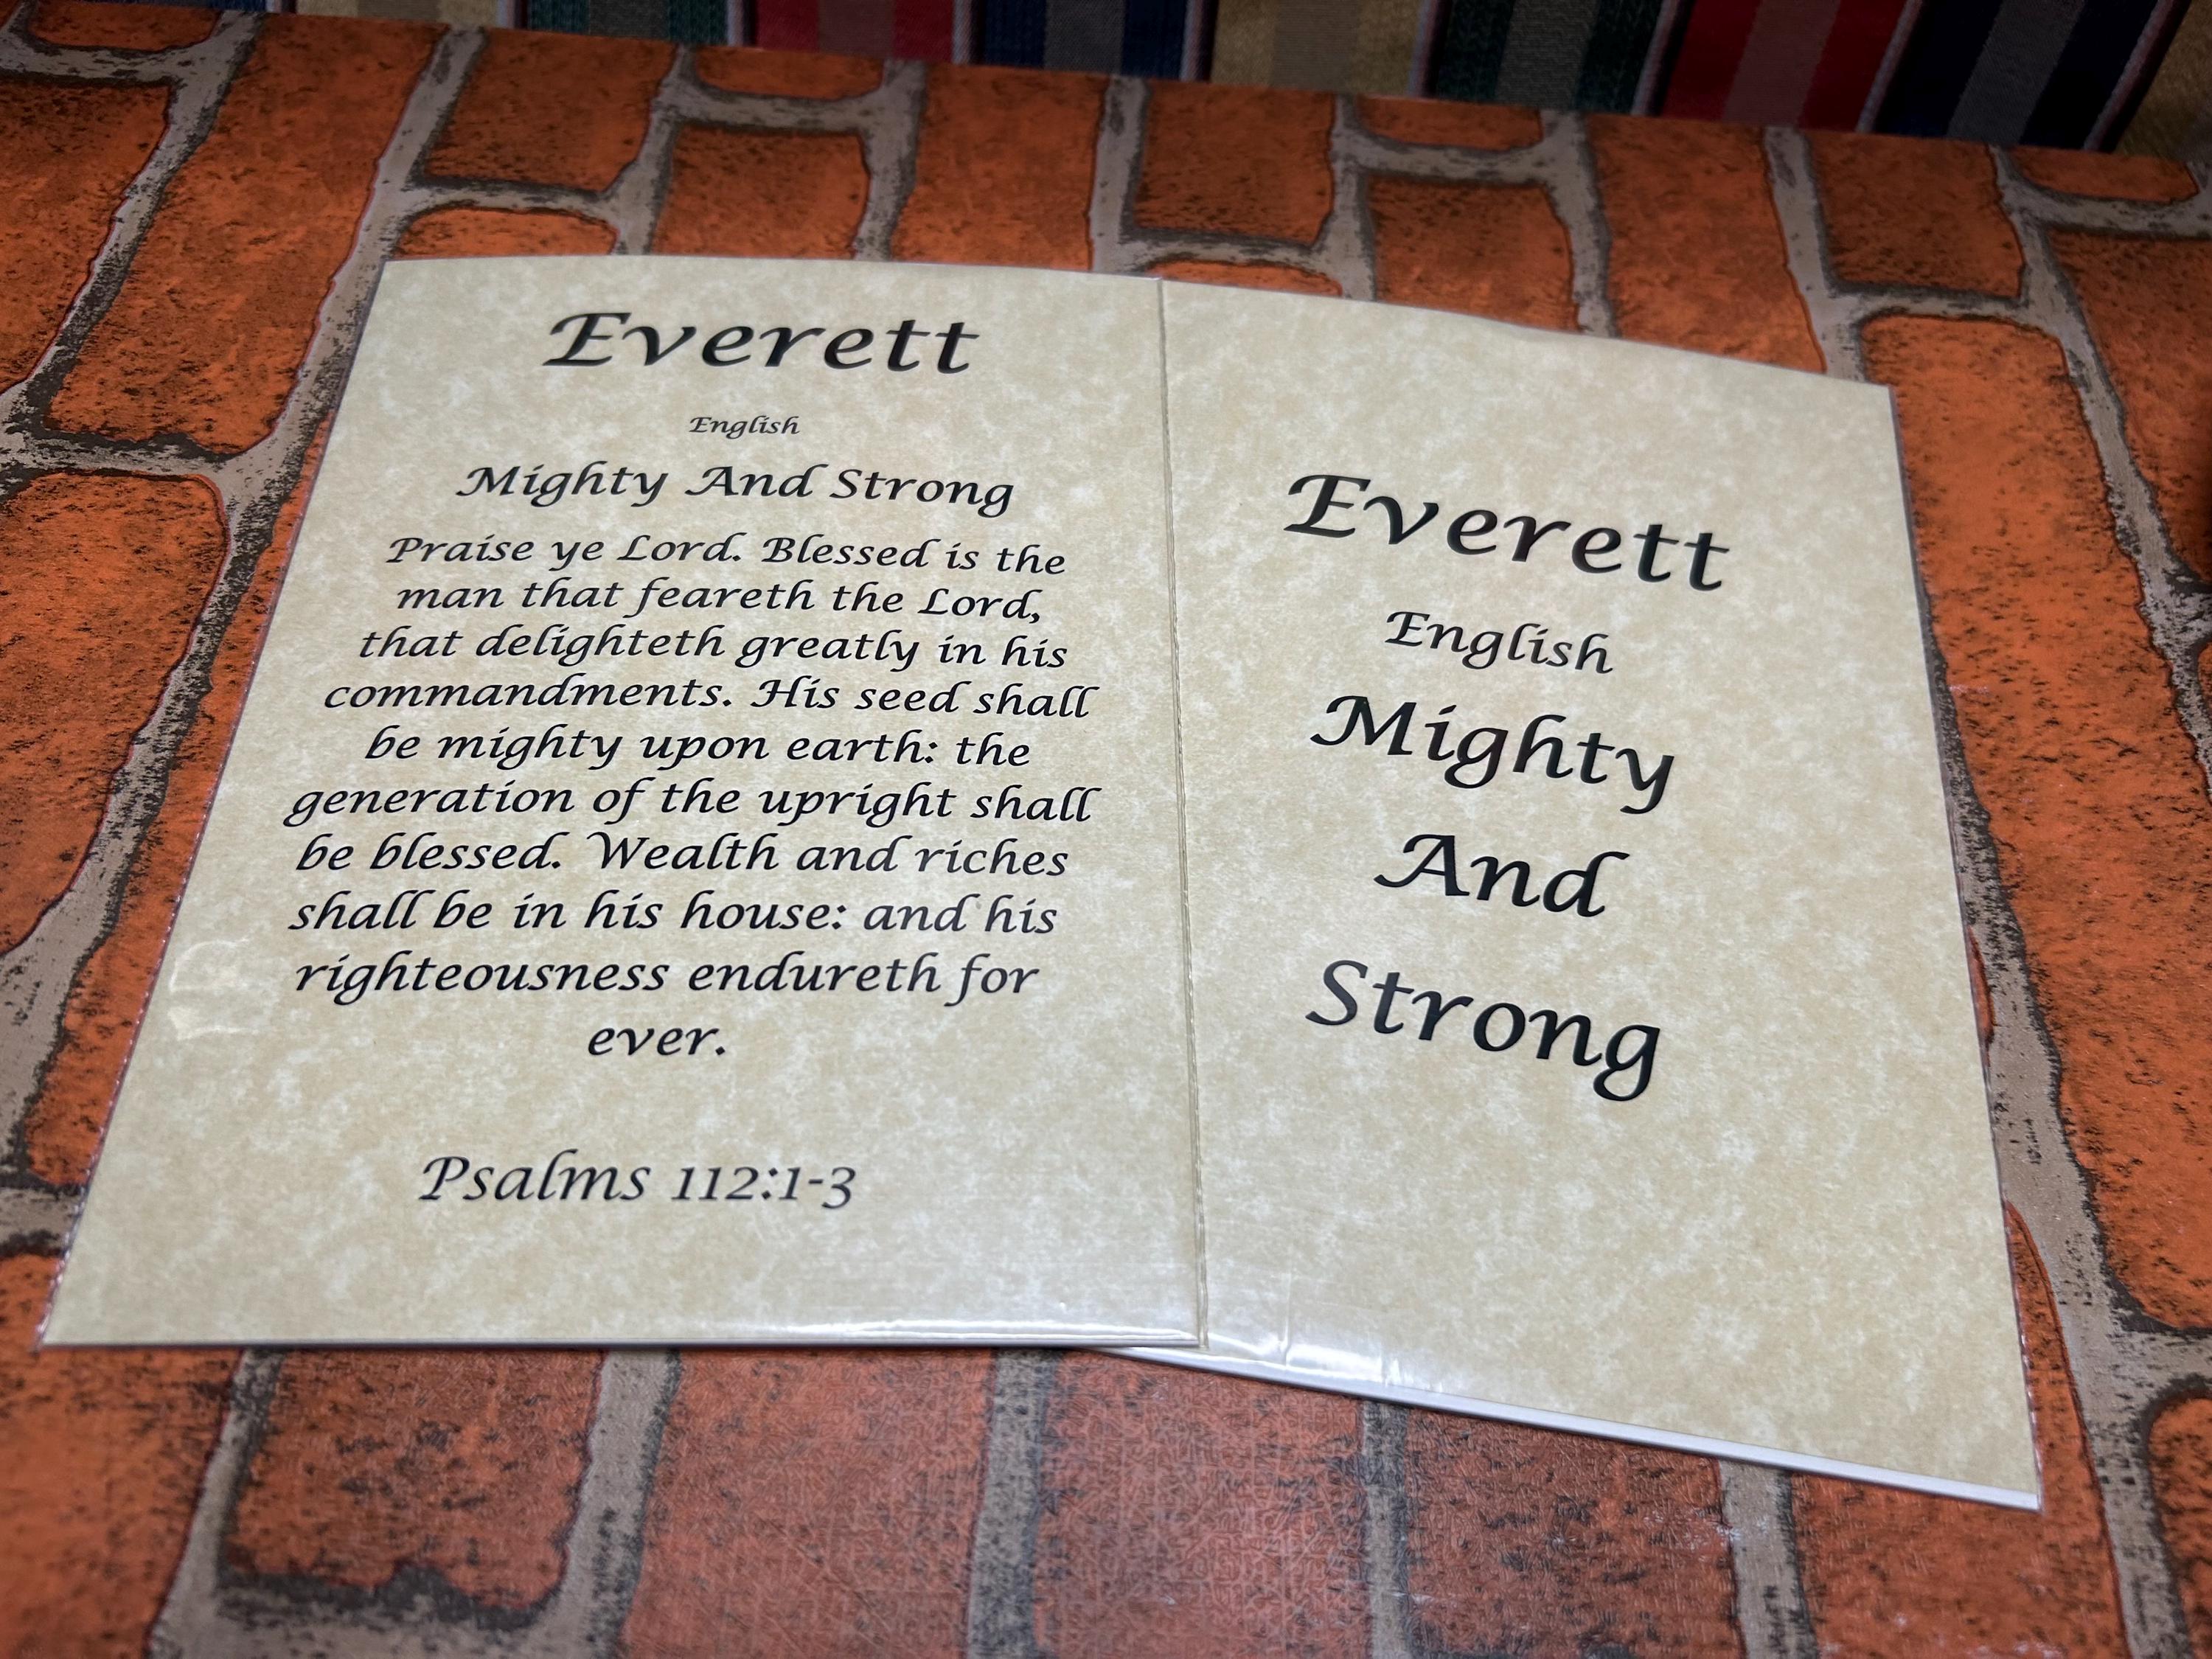 Everett
English
Mighty And Strong
Praise ye Lord. Blessed is the
man that feareth the Lord,
that delighteth greatly in his
commandments. His seed shall
be mighty upon earth: the
generation of the upright shall
be blessed. Wealth and riches
shall be in his house: and his
righteousness endureth for
ever.
Psalms 112:1-3
Everett
English
Mighty
And
Strong